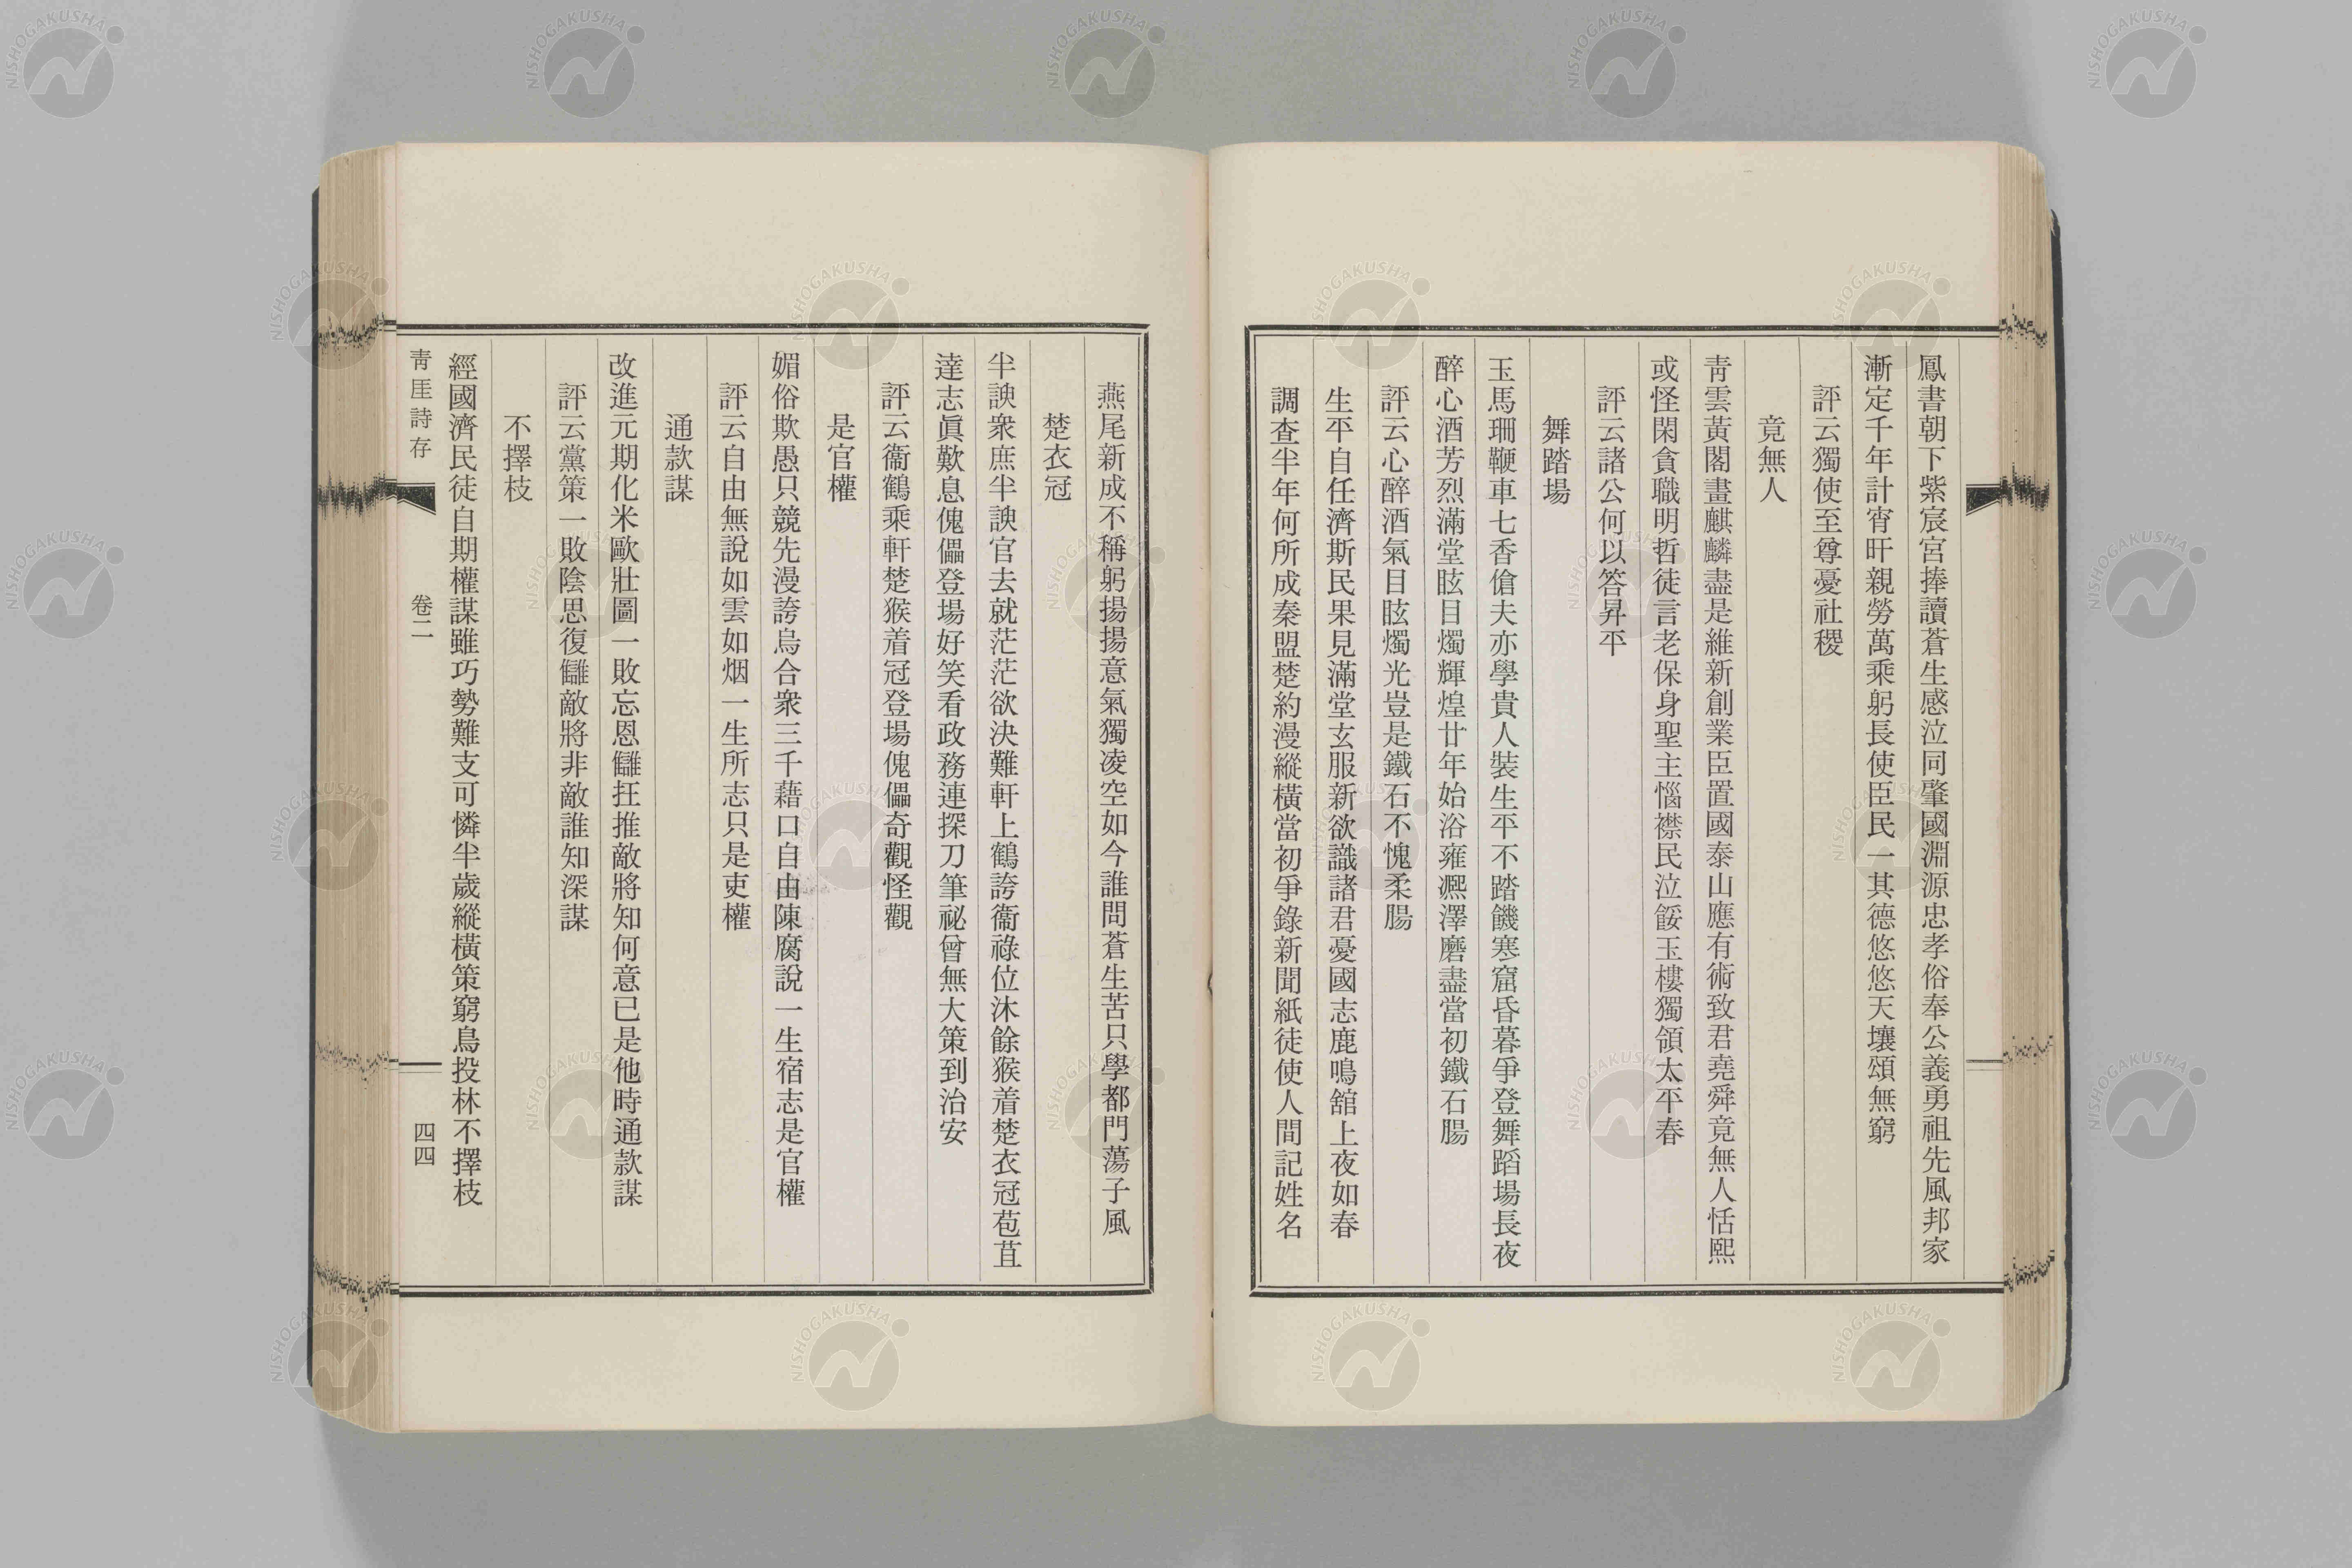 鳳書朝下紫宸宮捧讀蒼生感泣同肇國淵源忠孝俗奉公義勇祖先風邦家
漸定千年計宵旰親勞萬乘躬長使臣民一其德悠悠天壤頌無窮
評云獨使至尊憂社稷
竟無人
靑雲黃閣畫麒麟盡是維新創業臣置國泰山應有術致君堯舜竟無人恬熙
或怪閑貪職明哲徒言老保身聖主惱襟民泣餒玉樓獨領太平春
評云諸公何以答昇平
舞踏場
玉馬珊鞭車七香傖夫亦學貴人裝生平不踏饑寒窟昏暮爭登舞蹈場長夜
醉心酒芳烈滿堂眩目燭輝煌廿年始浴雍凞澤磨盡當初鐵石腸
評云心醉酒氣目眩燭光豈是鐵石不愧柔腸
生平自任濟斯民果見滿堂玄服新欲識諸君憂國志鹿鳴舘上夜如春
調查半年何所成秦盟楚約漫縱橫當初爭錄新聞紙徒使人間記姓名
燕尾新成不稱躬揚揚意氣獨凌空如今誰問蒼生苦只學都門蕩子風
楚衣冠
半諛衆庶半諛官去就茫茫欲決難軒上鶴誇衞祿位沐餘猴着楚衣冠苞苴
達志眞歎息傀儡登場好笑看政務連探刀筆祕曾無大策到治安
評云衞鶴乘軒楚猴着冠登場傀儡奇觀怪觀
是官權
媚俗欺愚只競先漫誇烏合衆三千藉口自由陳腐說一生宿志是官權
評云自由無說如雲如烟一生所志只是吏權
通款謀
改進元期化米歐壯圖一敗忘恩讎抂推敵將知何意已是他時通款謀
評云黨策一敗陰思復讎敵將非敵誰知深謀
不擇枝
經國濟民徒自期權謀雖巧勢難支可憐半歲縱橫策窮鳥投林不擇枝
靑厓詩存
卷二
四四
NISHOGAKUSHA